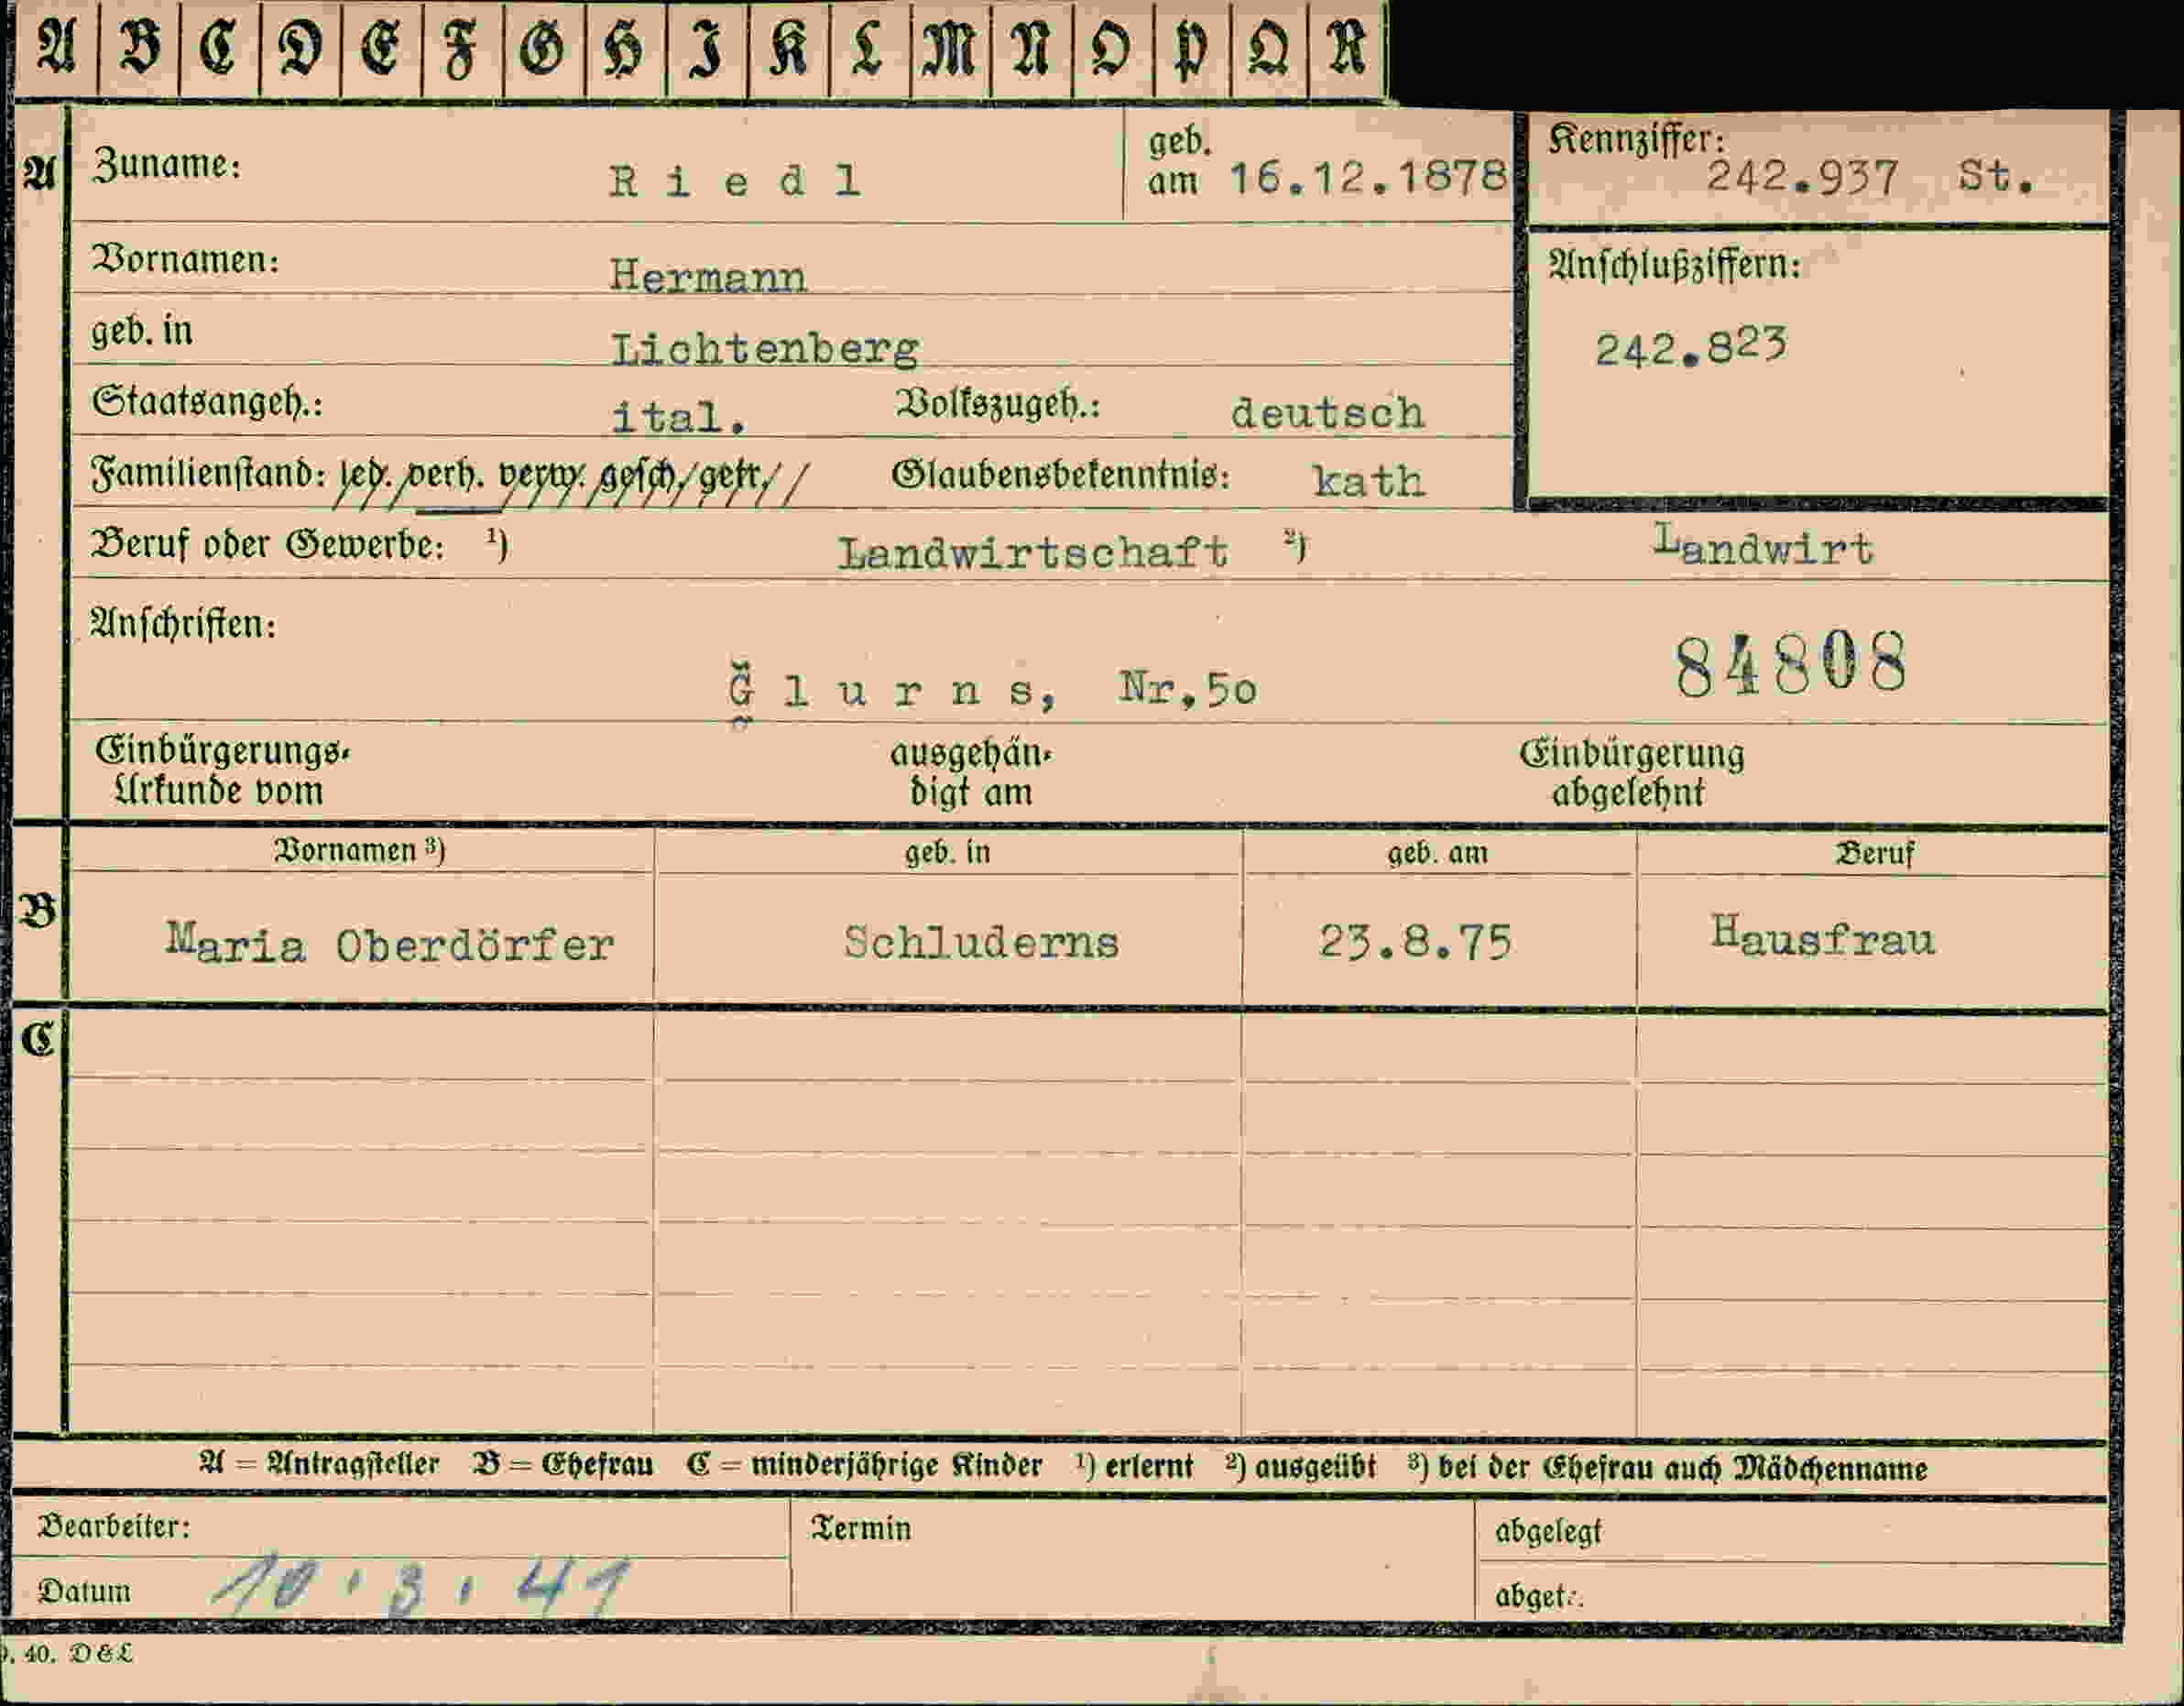 A B C D E F G H I K L M N O P Q R
A Zuname: Riedl geb. am 16.12.1878 Kennziffer: 242.937 St.
Vornamen: Hermann
Anschlußziffern:
geb. in Lichtenberg
242.823
Staatsangeh.: ital. Volkszugeh.: deutsch
Familienstand: led. verh. verw. gesch. getr. Glaubensbekenntnis: kath
Beruf oder Gewerbe: 1) Landwirtschaft 2) Landwirt
Anschriften:
84808
Glurns, Nr.50
Einbürgerungs- ausgehän- Einbürgerung
Urkunde vom digt am abgelehnt
Vornamen 3) geb. in geb. am Beruf
B Maria Oberdörfer Schluderns 23.8.75 Hausfrau
C
A = Antragsteller B = Ehefrau C = minderjährige Kinder 1) erlernt 2) ausgeübt 3) bei der Ehefrau auch Mädchenname
Bearbeiter: Termin abgelegt
Datum 10.3.41 abget.:
40. D&L